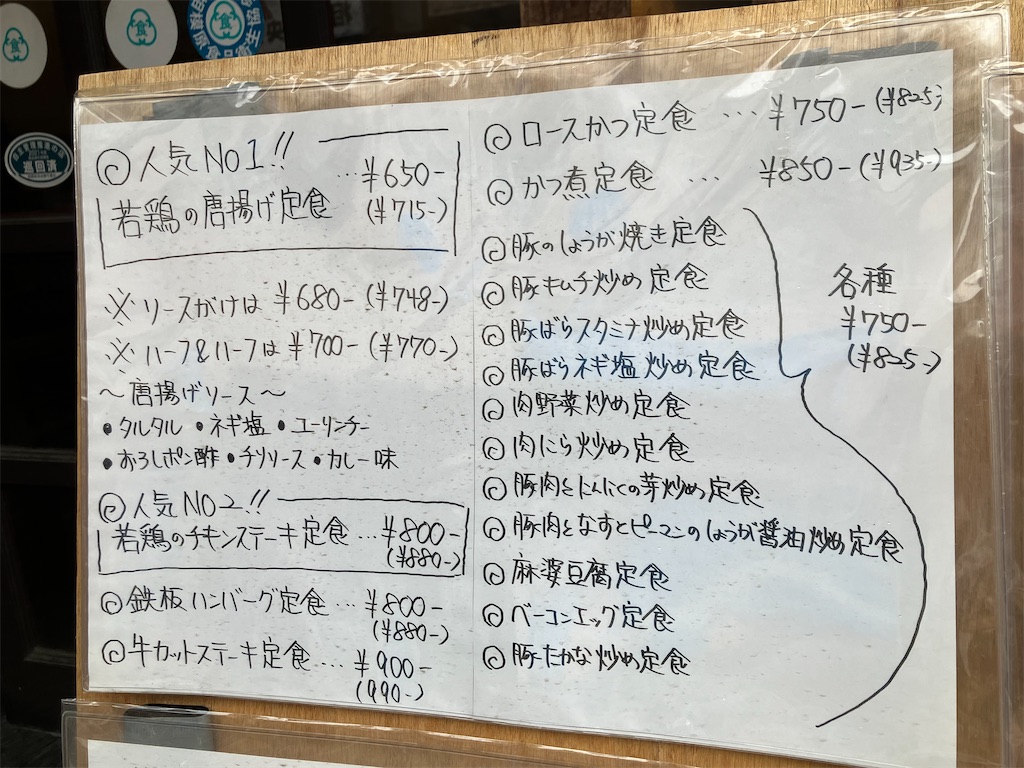 ◎人気NO1!!
若鶏の唐揚げ定食 …¥650-
(¥715-)
※ソースがけは ¥680- (¥748-)
※ハーフ&ハーフは ¥700- (¥770-)
~唐揚げソース~
・タルタル ・ネギ塩 ・ユーリンチー
・おろしポン酢 ・チリソース ・カレー味
◎人気NO2!!
若鶏のチキンステーキ定食 …¥800-
(¥880-)
◎鉄板ハンバーグ定食…¥800-
(¥880-)
◎牛カットステーキ定食….¥900-
(990-)
◎ロースかつ定食 … ¥750- (¥825)
◎かつ煮定食 … ¥850- (¥935-)
◎豚のしょうが焼き定食
◎豚キムチ炒め定食
◎豚ばらスタミナ炒め定食
◎豚ばらネギ塩炒め定食
◎肉野菜炒め定食
◎肉にら炒め定食
◎豚肉とにんにくの芽炒め定食
◎豚肉となすとピーマンのしょうが醤油炒め定食
◎麻婆豆腐定食
◎ベーコンエッグ定食
◎豚たかな炒め定食
各種
¥750-
(¥825-)